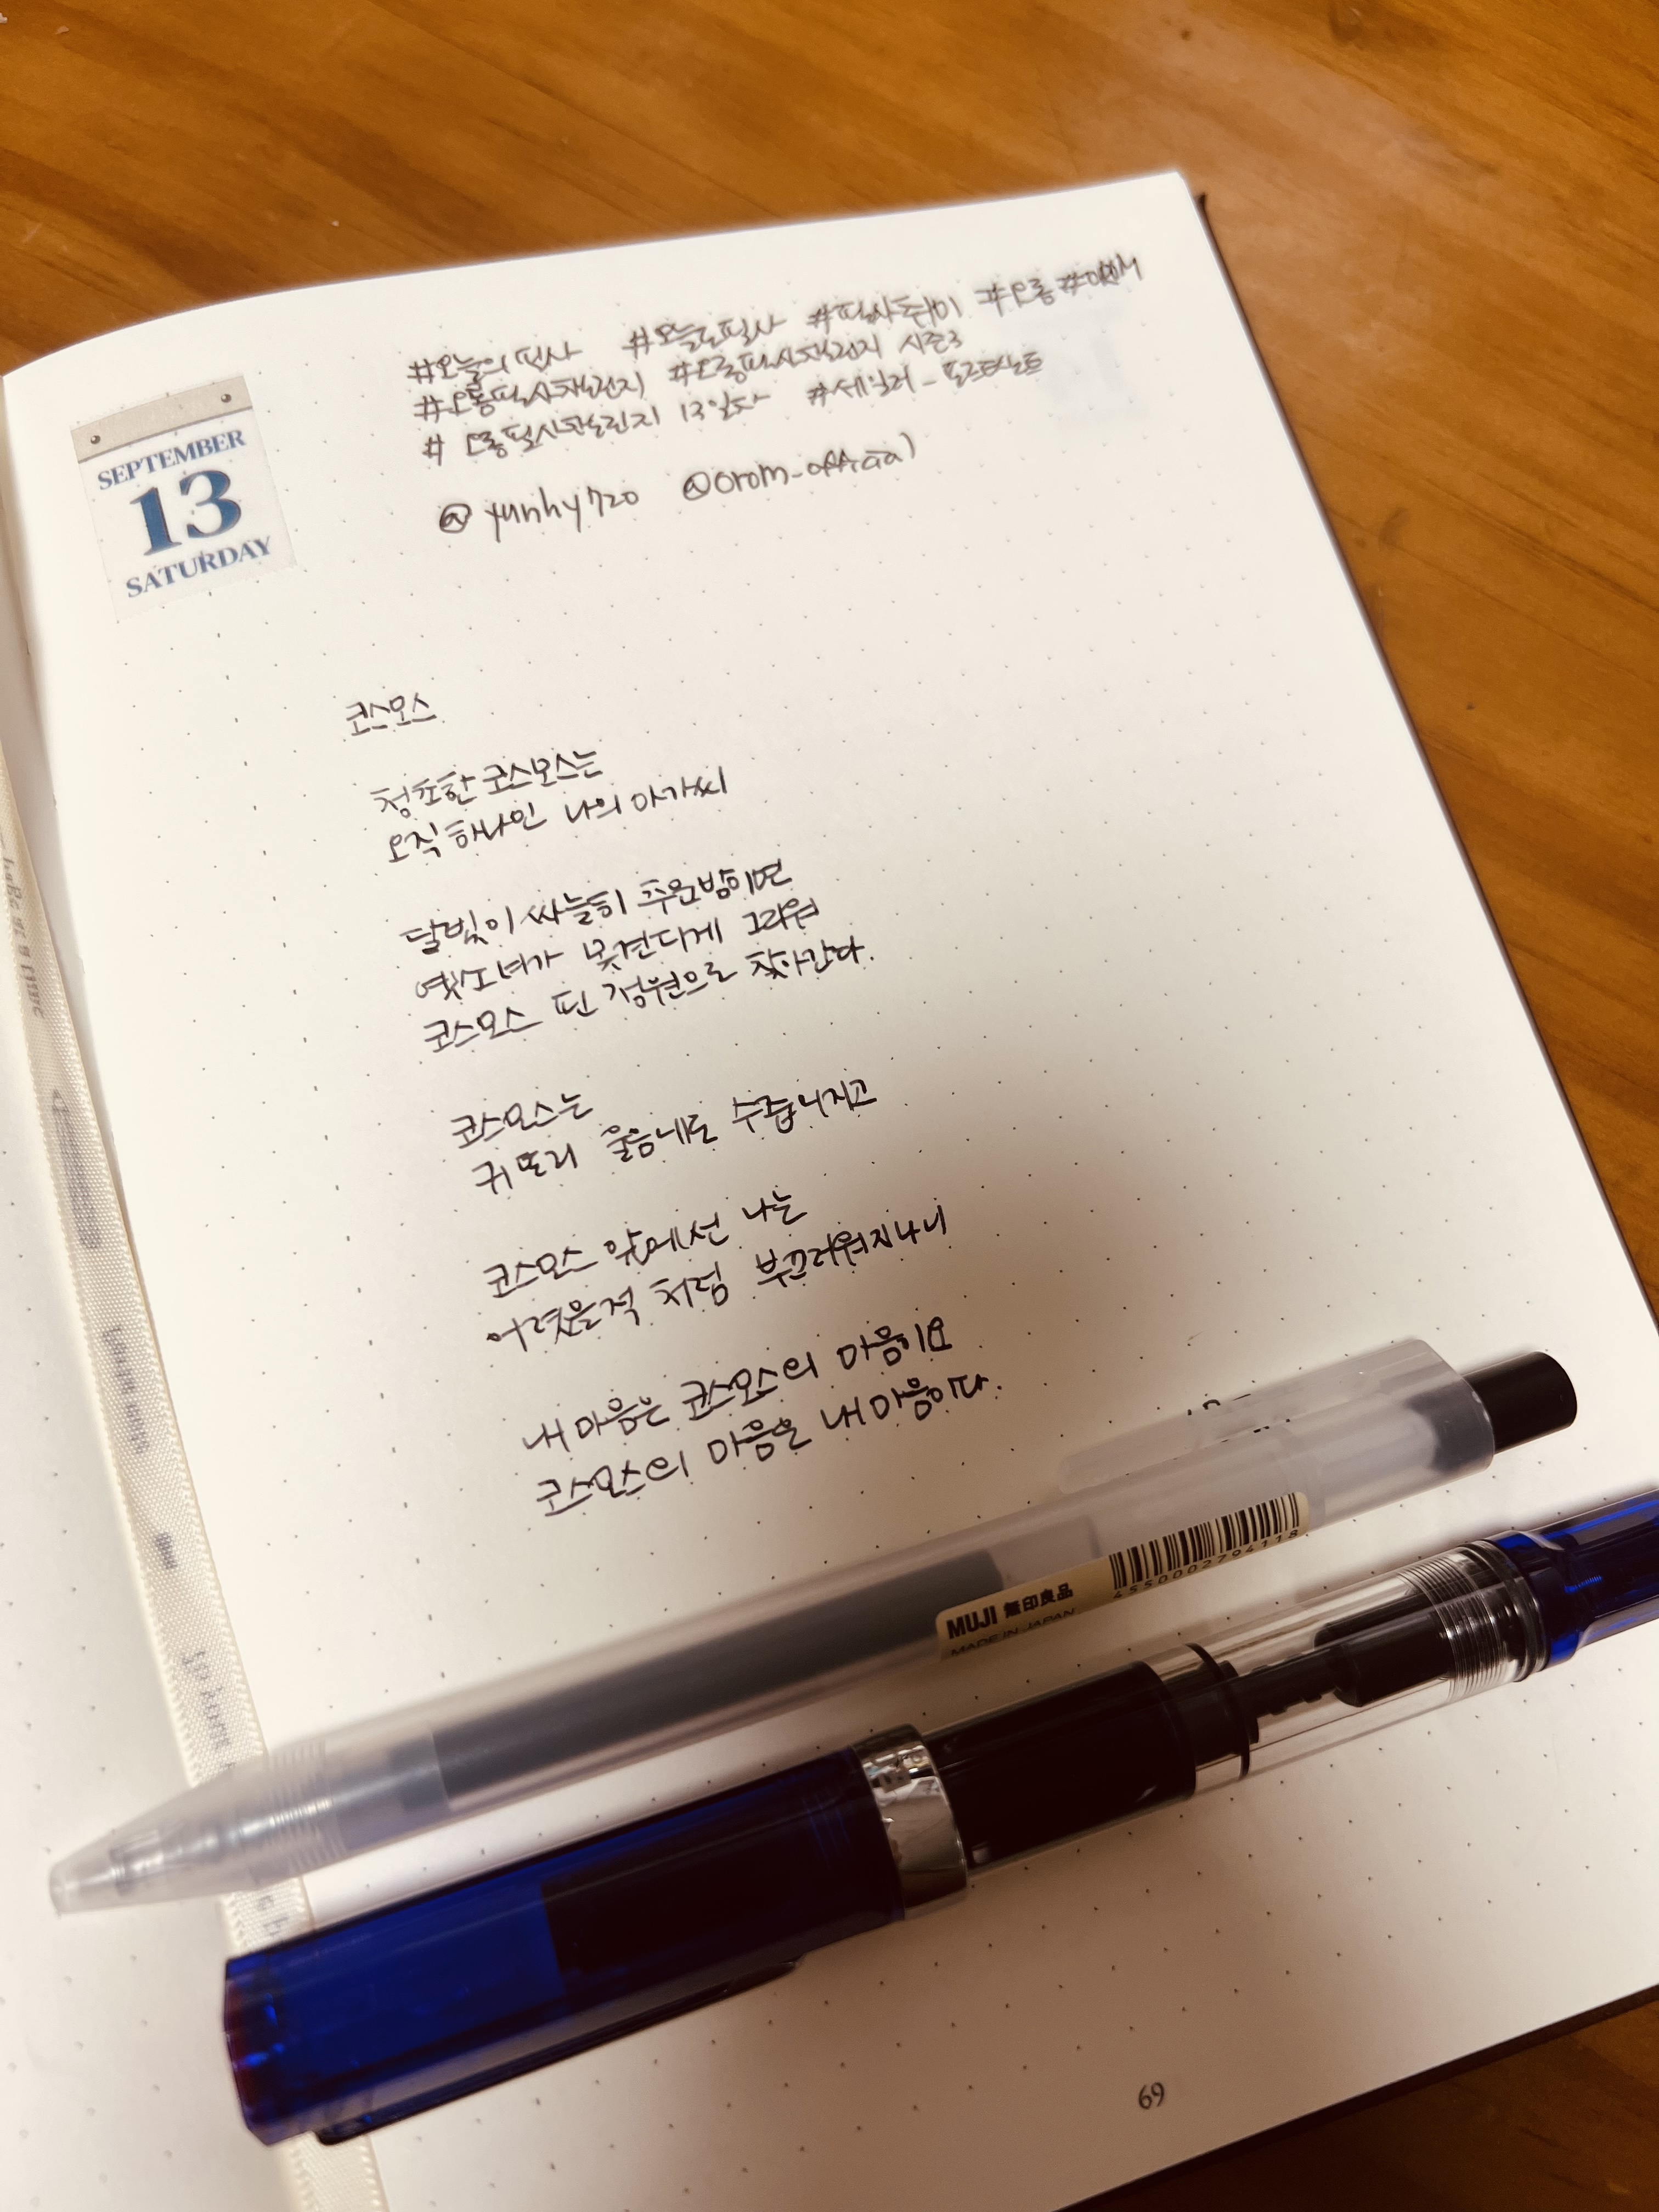 #오늘의 필사 #오늘도필사 #필사취미 #오롬
#오롬필사챌린지 #오롬필사챌린지 시즌3
#오롬필사챌린지 13일차 #세일러_프로피트
@yunhy720 @orom_official
SEPTEMBER
13
SATURDAY
코스모스
청초한 코스모스는
오직 하나인 나의 아가씨
달빛이 싸늘히 추운밤이면
옛소녀가 못견디게 그리워
코스모스 핀 정원으로 찾아간다.
코스모스는
귀또리 울음에도 수줍어지고
코스모스 앞에선 나는
어렸을적 처럼 부끄러워지나니
내 마음은 코스모스의 마음이요
코스모스의 마음은 내 마음이다.
MUJI 無印良品
MADE IN JAPAN
4550002794118
69